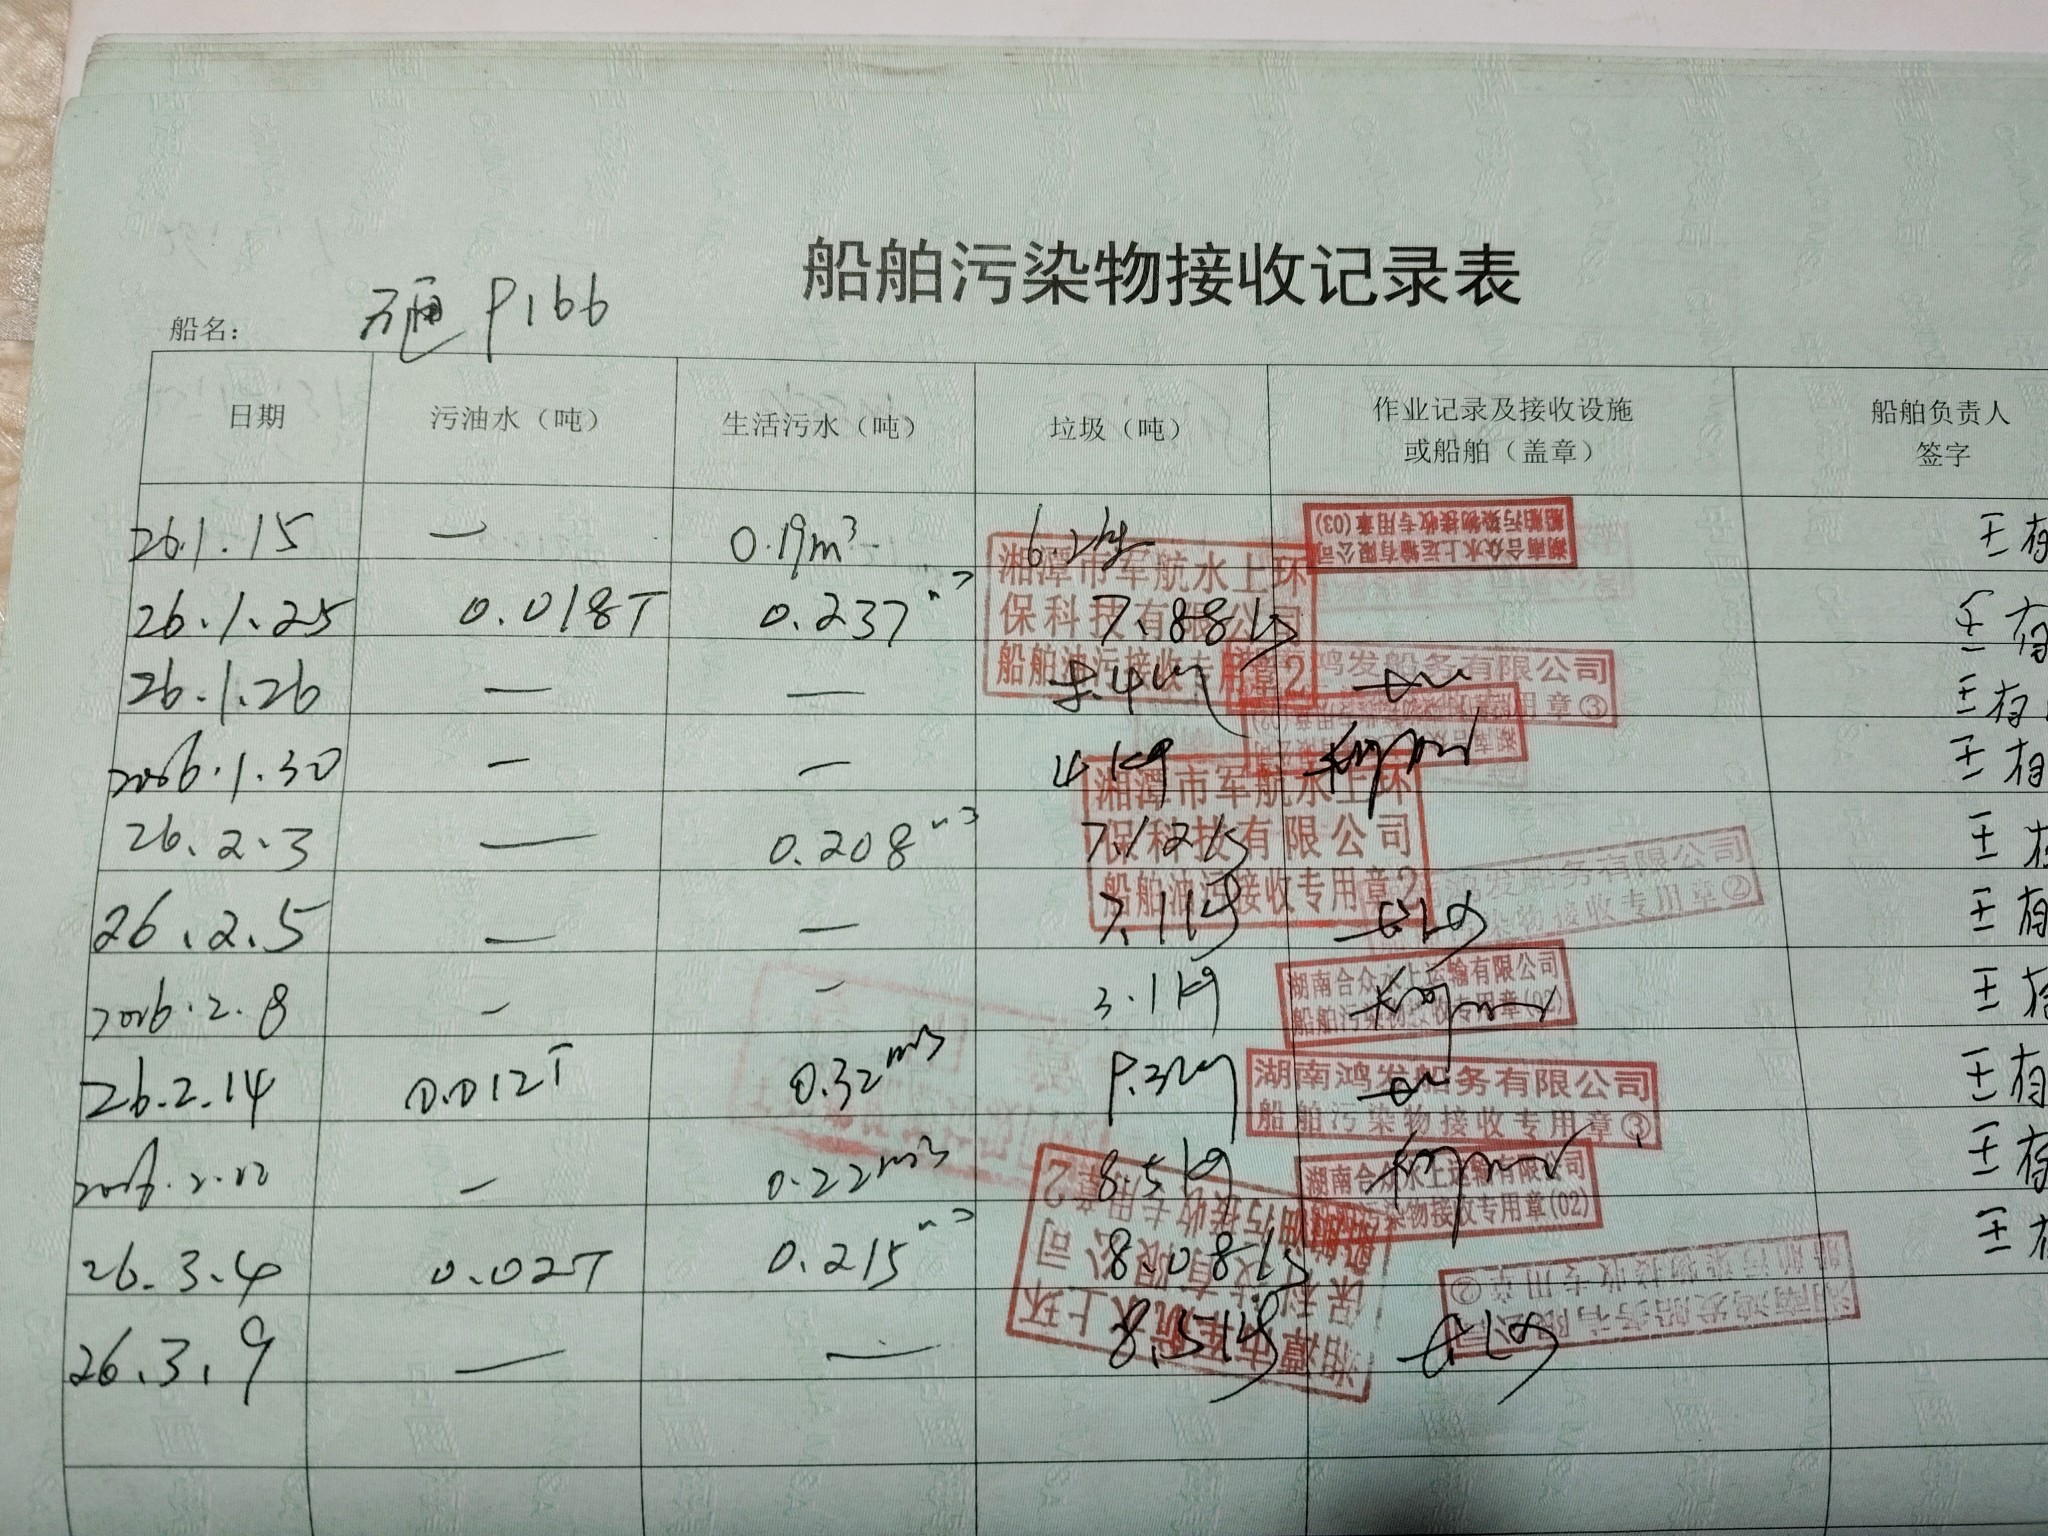 船舶污染物接收记录表
船名： P166
日期 污油水（吨） 生活污水（吨） 垃圾（吨） 作业记录及接收设施或船舶（盖章） 船舶负责人签字
26.1.15 — 0.19m³ 6.2kg 湖南合众水上运输有限公司 船舶污染物接收专用章(03) 王存
26.1.25 0.018T 0.237m³ 7.88kg 湘潭市军航水上环保科技有限公司 船舶油污接收专用章2 王有
26.1.26 — — 8.4kg 鸿发船务有限公司 用章③ 王有
2026.1.30 — — 4kg 王有
26.2.3 — 0.208m³ 7.12kg 湘潭市军航水上环保科技有限公司 船舶油污接收专用章2 王
26.2.5 — — 7.1kg 鸿发船务有限公司 染物接收专用章② 王有
2026.2.8 — — 3.1kg 湖南合众水上运输有限公司 船舶污染物接收专用章(02) 王
26.2.14 0.012T 0.32m³ 9.3kg 湖南鸿发船务有限公司 船舶污染物接收专用章③ 王有
— 0.22m³ 8.5kg 湖南合众水上运输有限公司 船舶污染物接收专用章(02) 王存
26.3.4 0.02T 0.215m³ 8.08kg 湘潭市军航水上环保科技有限公司 船舶油污接收专用章2 王
26.3.9 — — 8.5kg 湖南鸿发船务有限公司 船舶污染物接收专用章②